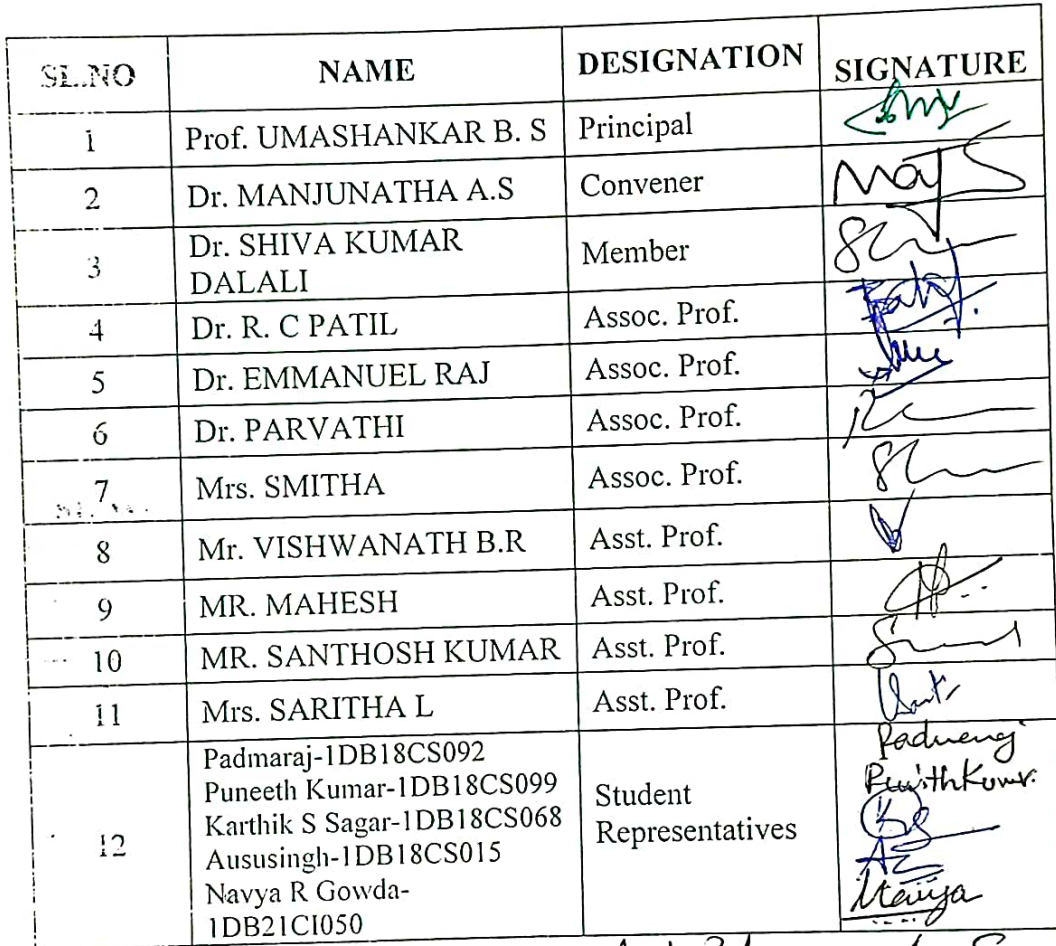 SL.NO NAME DESIGNATION SIGNATURE
1 Prof. UMASHANKAR B. S Principal
2 Dr. MANJUNATHA A.S Convener
3 Dr. SHIVA KUMAR DALALI Member
4 Dr. R. C PATIL Assoc. Prof.
5 Dr. EMMANUEL RAJ Assoc. Prof.
6 Dr. PARVATHI Assoc. Prof.
7 Mrs. SMITHA Assoc. Prof.
8 Mr. VISHWANATH B.R Asst. Prof.
9 MR. MAHESH Asst. Prof.
10 MR. SANTHOSH KUMAR Asst. Prof.
11 Mrs. SARITHA L Asst. Prof.
12
Padmaraj-1DB18CS092
Puneeth Kumar-1DB18CS099
Karthik S Sagar-1DB18CS068
Aususingh-1DB18CS015
Navya R Gowda-
1DB21CI050
Student
Representatives